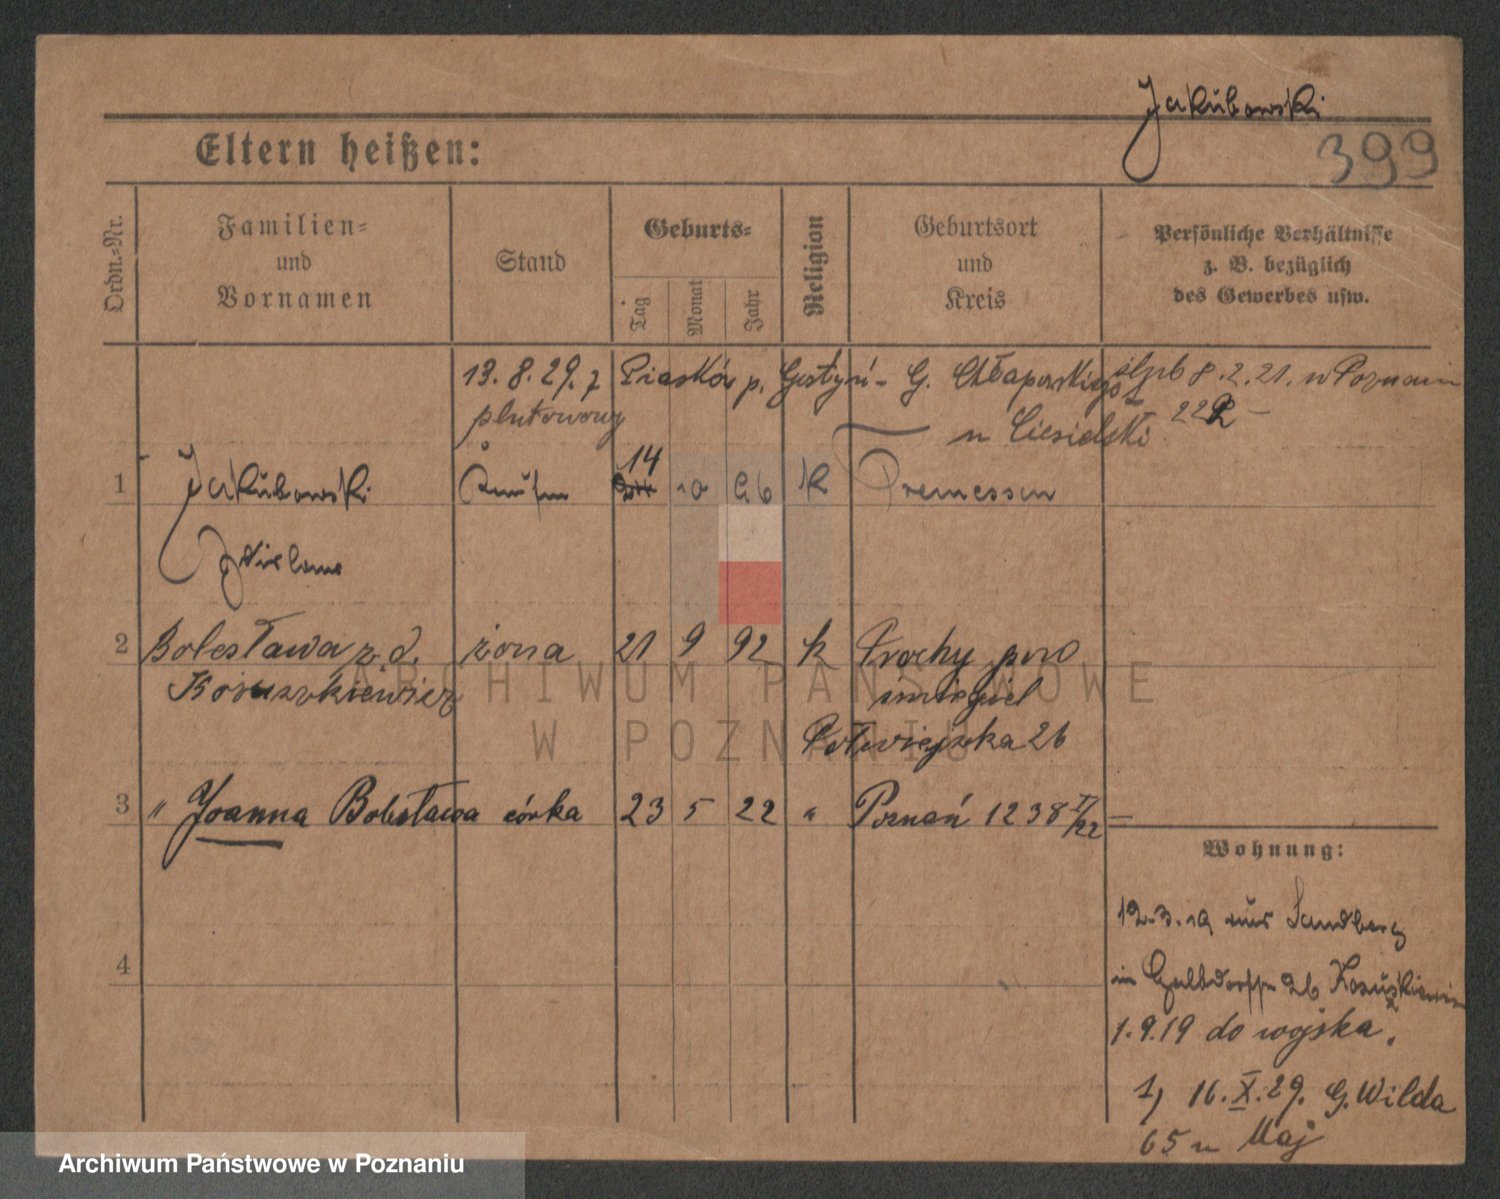 Jakubowski
399
Eltern heißen:
Ordn.-Nr.
Familien-
und
Vornamen
Stand
Geburts-
Tag
Monat
Jahr
Religion
Geburtsort
und
Kreis
Persönliche Verhältnisse
z. B. bezüglich
des Gewerbes usw.
13.8.29. z Piasków p. Gostyń - G. Chłapowskiego ślub 8.2.21. w Poznaniu
plutonowy u Ciesielski 222 -
1 Jakubowski 14 10 96 k Tremessen
2 Bolesława z d. żona 21 9 92 k Prochy pow
śmigiel
Półwiejska 26
3 " Joanna Bolesława córka 23 5 22 " Poznań 1238 I/22 -
4
Wohnung:
12.3.19 aus Sandberg
in Halbdorfstr 26
1.9.19 do wojska.
1) 16.X.29. G. Wilda
65 u Maj
ARCHIWUM PAŃSTWOWE
W POZNANIU
Archiwum Państwowe w Poznaniu